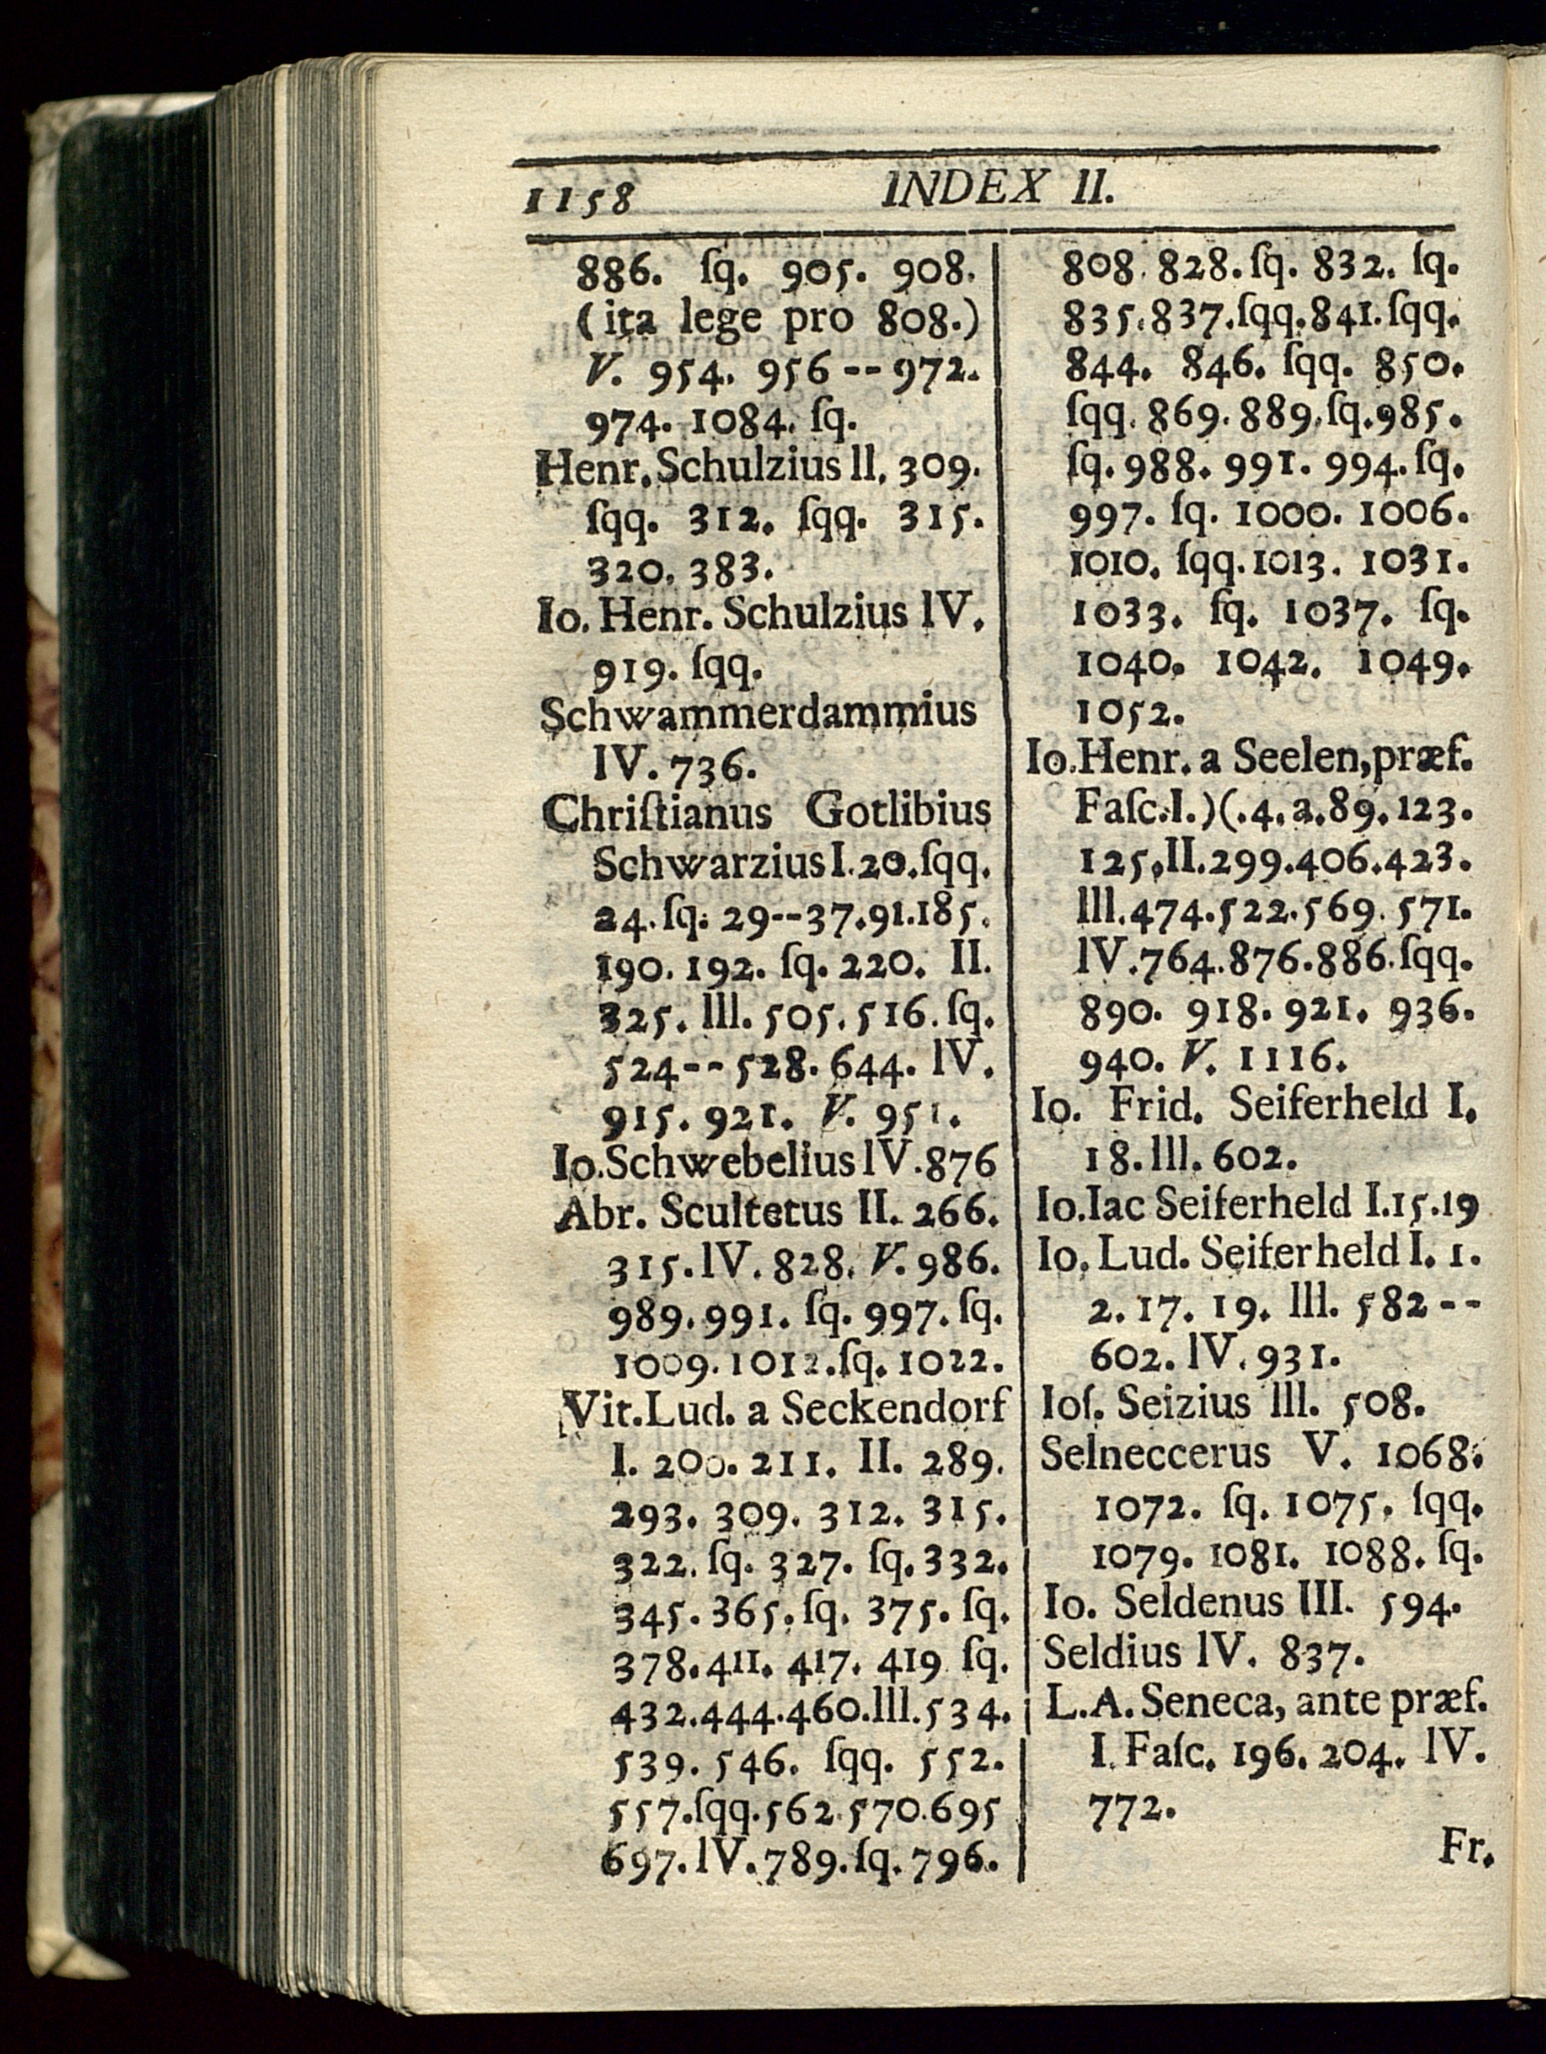 1158 INDEX II.
886. ſq. 905. 908.
(ita lege pro 808.)
V. 954. 956--972.
974. 1084. ſq.
Henr. Schulzius II. 309.
ſqq. 312. ſqq. 315.
320. 383.
Io. Henr. Schulzius IV.
919. ſqq.
Schwammerdammius
IV. 736.
Chriſtianus Gotlibius
Schwarzius I. 20. ſqq.
24. ſq. 29--37. 91. 185.
190. 192. ſq. 220. II.
325. III. 505. 516. ſq.
524--528. 644. IV.
915. 921. V. 951.
Io. Schwebelius IV. 876
Abr. Scultetus II. 266.
315. IV. 828. V. 986.
989. 991. ſq. 997. ſq.
1009. 1012. ſq. 1022.
Vit. Lud. a Seckendorf
I. 200. 211. II. 289.
293. 309. 312. 315.
322. ſq. 327. ſq. 332.
345. 365. ſq. 375. ſq.
378. 411. 417. 419 ſq.
432. 444. 460. III. 534.
539. 546. ſqq. 552.
557. ſqq. 562. 570. 695
697. IV. 789. ſq. 796.
808. 828. ſq. 832. ſq.
835. 837. ſqq. 841. ſqq.
844. 846. ſqq. 850.
ſqq. 869. 889. ſq. 985.
ſq. 988. 991. 994. ſq.
997. ſq. 1000. 1006.
1010. ſqq. 1013. 1031.
1033. ſq. 1037. ſq.
1040. 1042. 1049.
1052.
Io. Henr. a Seelen, præf.
Faſc. I. )(. 4. a. 89. 123.
125. II. 299. 406. 423.
III. 474. 522. 569. 571.
IV. 764. 876. 886. ſqq.
890. 918. 921. 936.
940. V. 1116.
Io. Frid. Seiferheld I.
18. III. 602.
Io. Iac Seiferheld I. 15. 19
Io. Lud. Seiferheld I. 1.
2. 17. 19. III. 582--
602. IV. 931.
Ioſ. Seizius III. 508.
Selneccerus V. 1068.
1072. ſq. 1075. ſqq.
1079. 1081. 1088. ſq.
Io. Seldenus III. 594.
Seldius IV. 837.
L. A. Seneca, ante præf.
I. Faſc. 196. 204. IV.
772.
Fr.